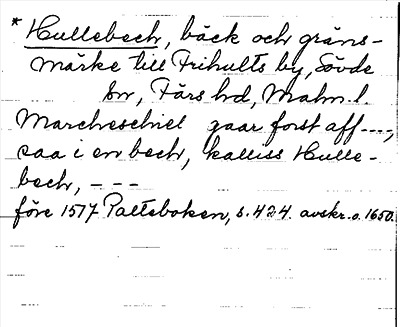 * Hullebech, bäck och gräns-
märke till Frihults by, Sövde
sn, Färs hd, Malm. l.
Marcheschiel gaar forst aff ----,
saa i en bech, kalliss Hulle-
bech, - - -
före 1517 Palteboken, s. 424. avskr. o. 1650.